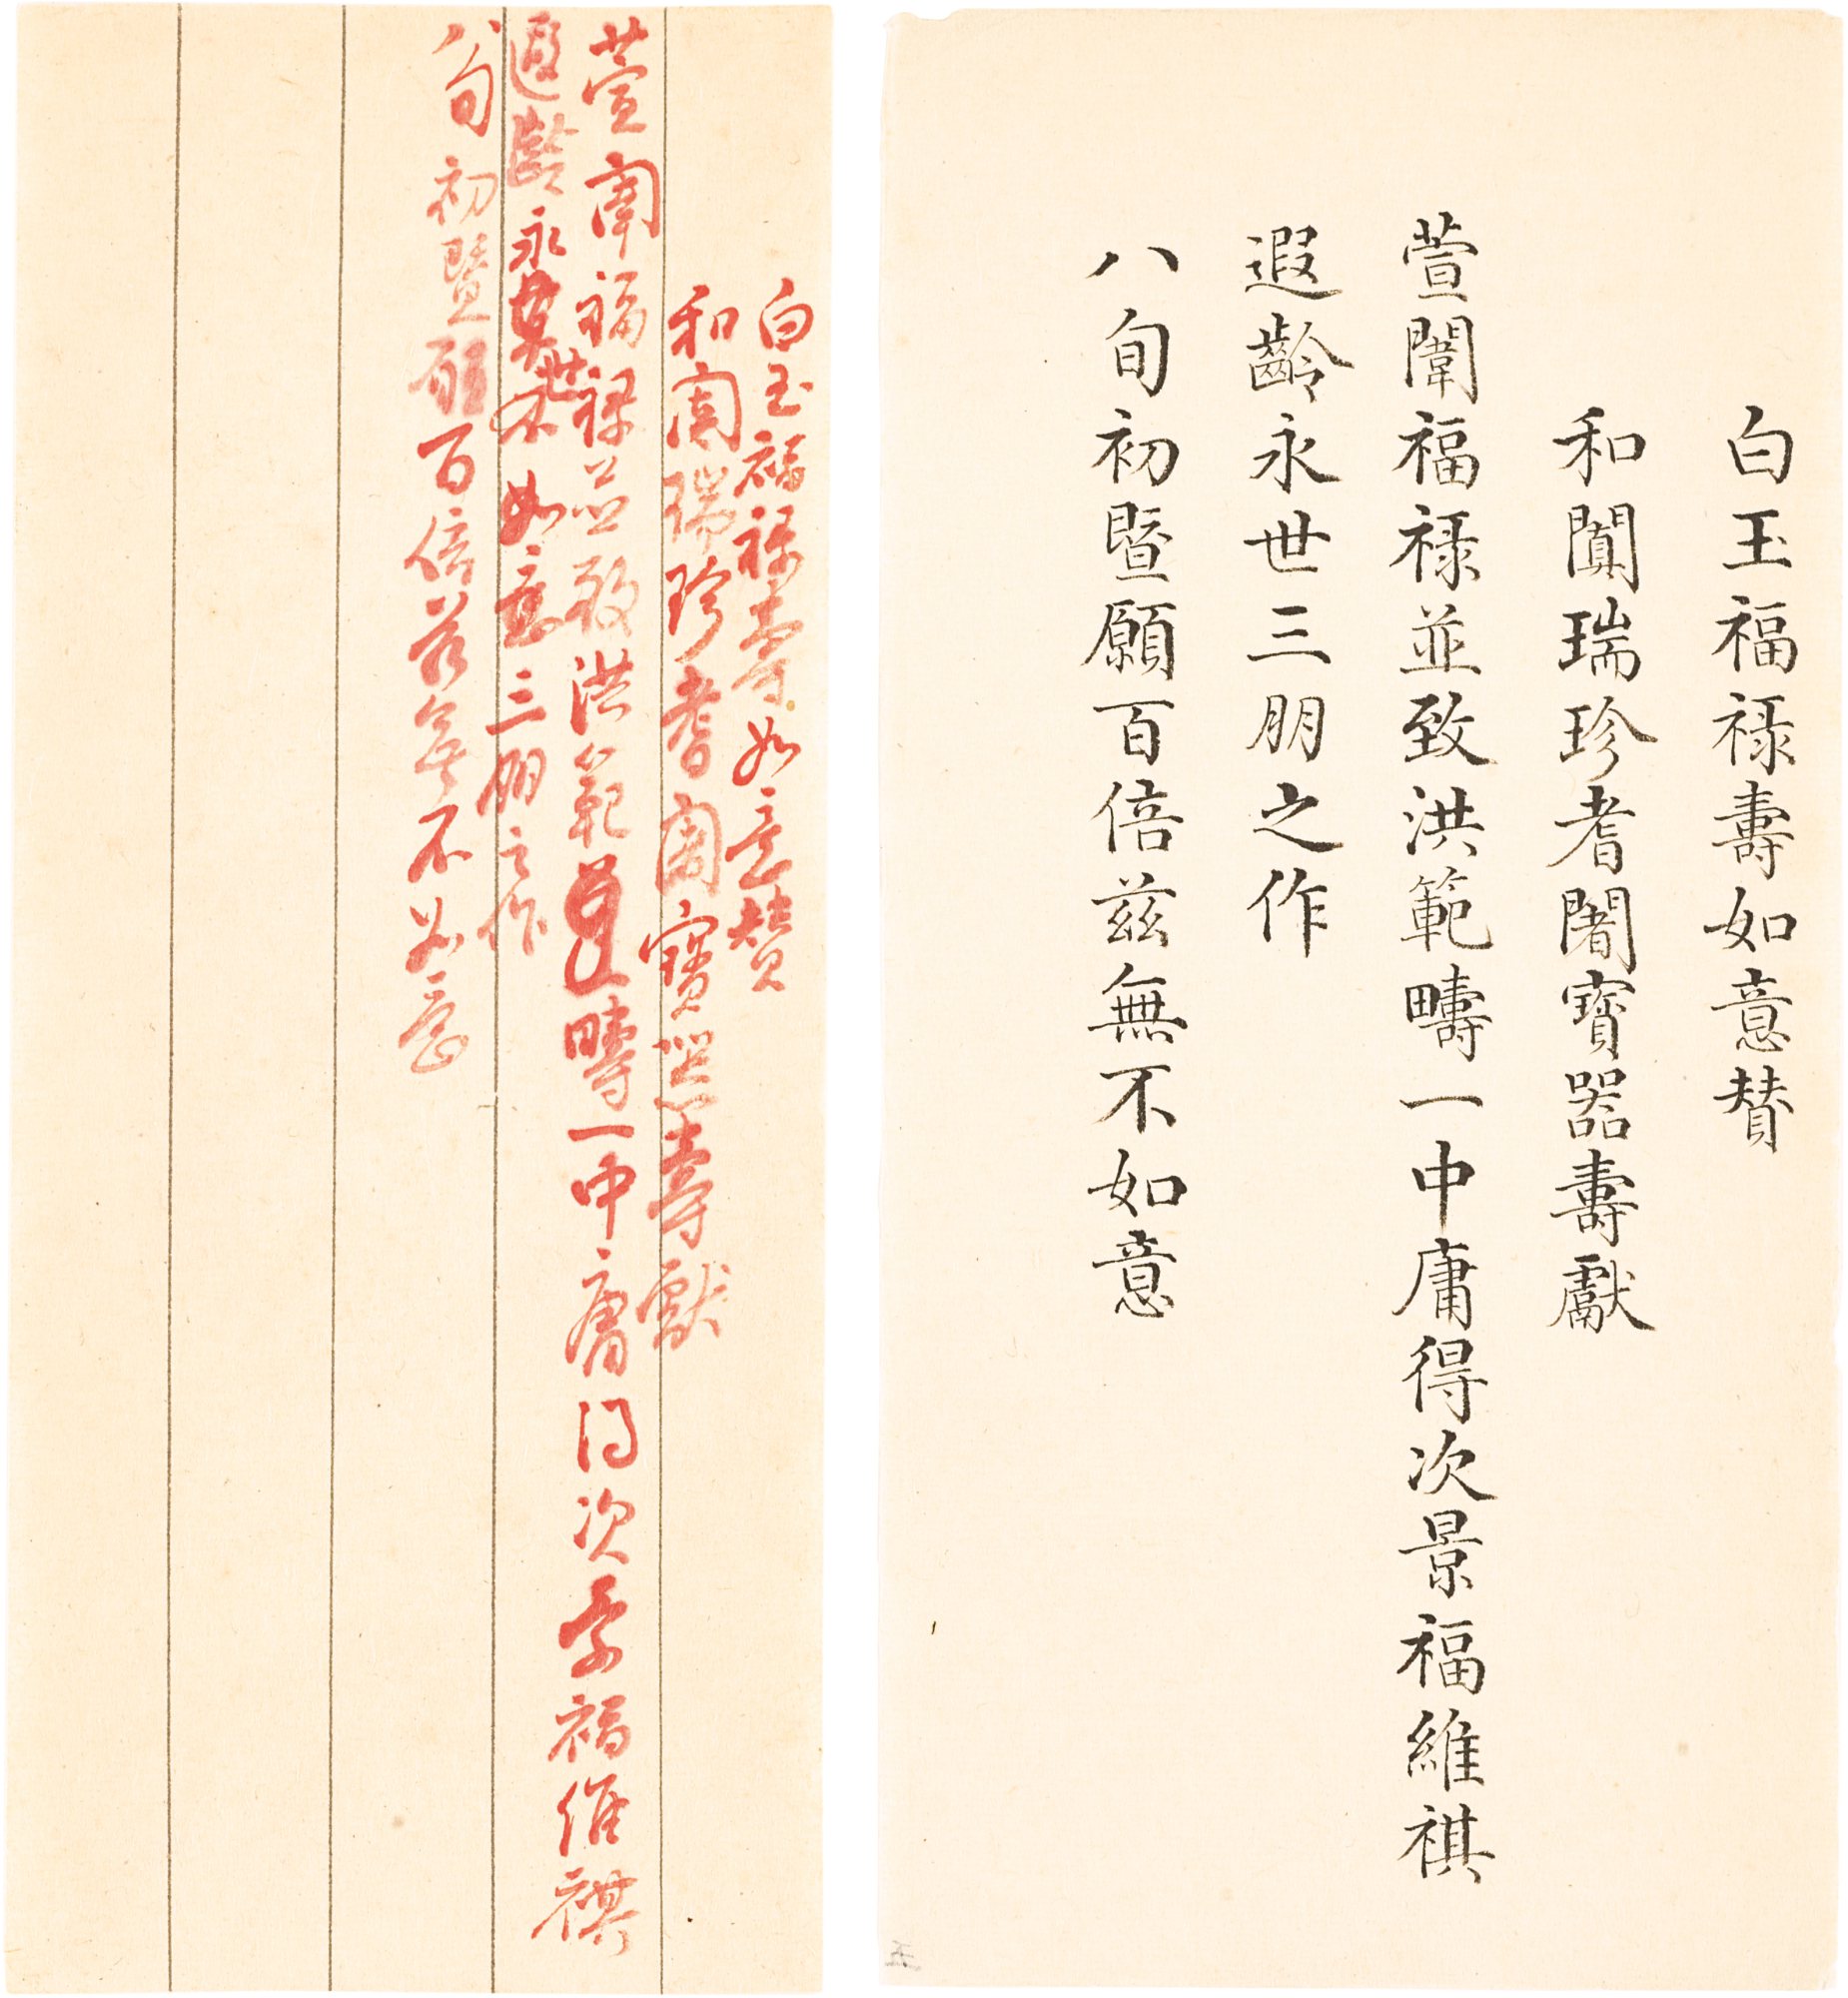 白玉福祿壽如意贊
和闐瑞珍耆闍寶器壽獻
萱闈福祿並致洪範疇一中庸得次景福維祺
遐齡永世三朋之作
八旬初暨願百倍茲無不如意
白玉福祿壽如意贊
和闐瑞珍耆闍寶器壽獻
萱闈福祿並致洪範疇一中庸得次景福維祺
遐齡永世不如意三朋之作
八旬初暨願百倍茲無不如意